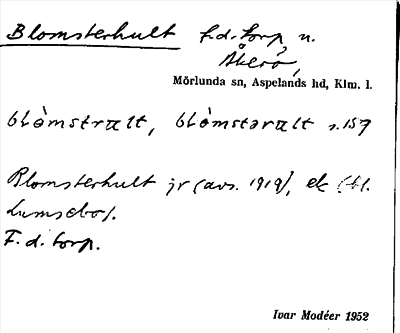 Blomsterhult f.d. torp u.
Åkerö,
Mörlunda sn, Aspelands hd, Klm. l.
blòmstrælt, blòmstərælt s. 159
Blomsterhult jr (avs. 1919), ek (fl.
Lumsebo).
F.d. torp.
Ivar Modéer 1952